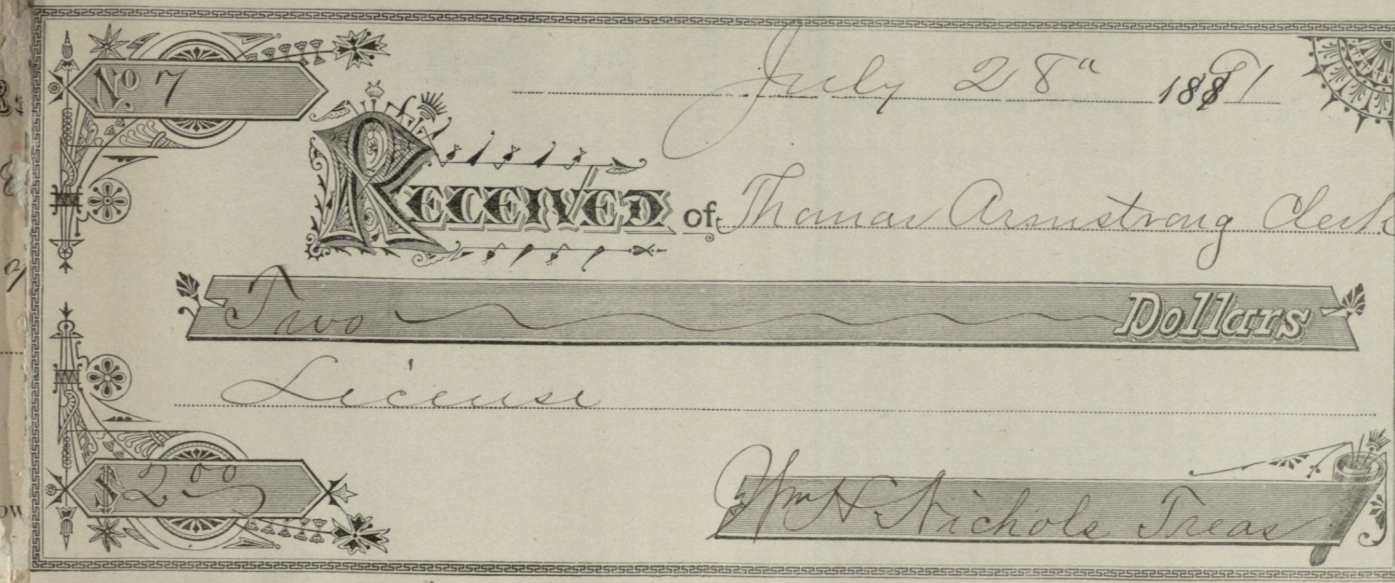 No 7
July 28" 1891
RECEIVED of Thomas Armstrong Clerk
Two Dollars
License
$2 00
Wm H Nichols Treas